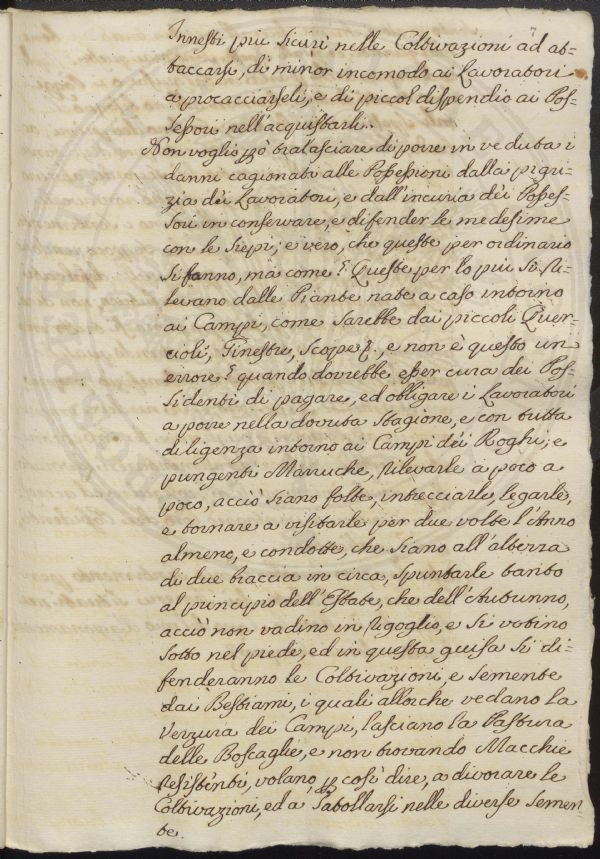 7
Innesti piu sicuri nelle Coltivazioni ad at=
taccarsi, di minor incomodo ai Lavoratori
a procacciarseli, e di piccol dispendio ai Pos=
sessori nell'acquistarli.
Non voglio però tralasciare di porre in veduta i
danni cagionati alle Possessioni dalla pigri=
zia dei Lavoratori, e dall'incuria dei Posses=
sori in conservare, e difender le medesime
con le siepi; e vero, che queste per ordinario
si fanno, ma come? Queste per lo piu si ri=
levano dalle Piante nate a caso intorno
ai Campi, come sarebbe dai piccoli Quer=
cioli, Ginestre, Scope &, e non è questo un
errore? quando dovrebbe esser cura dei Pos=
sidenti di pagare, ed obligare i Lavoratori
a porre nella dovuta stagione, e con tutta
diligenza intorno ai Campi dei Roghi; e
pungenti Marruche, rilevarle a poco a
poco, acciò siano folte, intrecciarle, legarle,
e tornare a visitarle per due volte l'Anno
almeno, e condotte, che siano all'altezza
di due braccia in circa, spuntarle tanto
al principio dell'Estate, che dell'Autunno,
acciò non vadino in rigoglio, e si votino
sotto nel piede, ed in questa guisa si di=
fenderanno le Coltivazioni, e semente
dai Bestiami, i quali allorche vedano la
Verzura dei Campi, lasciano la Pastura
delle Boscaglie, e non trovando Macchie
resistenti, volano p così dire, a divorare le
Coltivazioni, ed a satollarsi nelle diverse semen=
te.